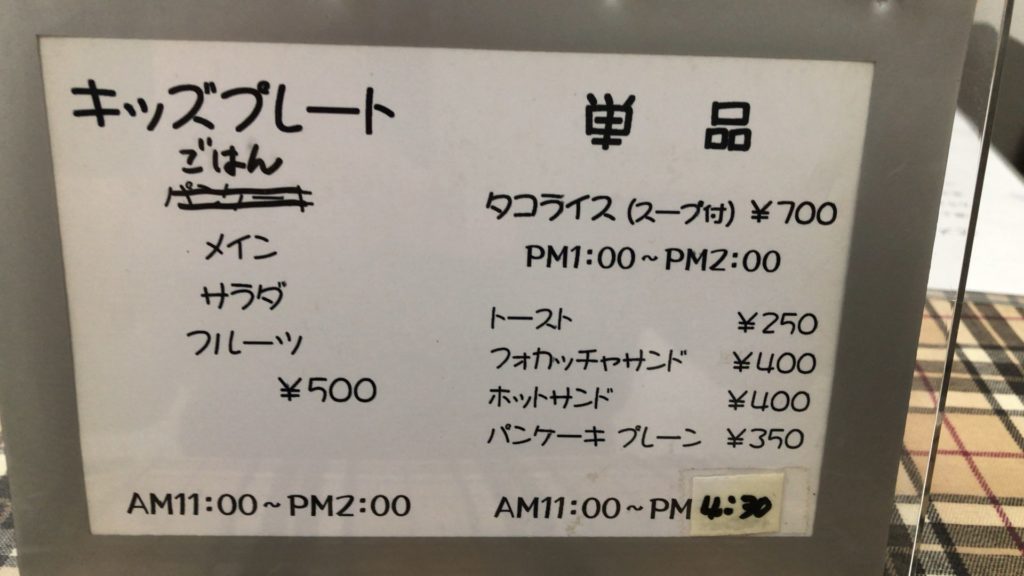 キッズプレート
ごはん
メイン
サラダ
フルーツ
¥500
AM11:00~PM2:00
単 品
タコライス(スープ付) ¥700
PM1:00~PM2:00
トースト ¥250
フォカッチャサンド ¥400
ホットサンド ¥400
パンケーキ プレーン ¥350
AM11:00~PM 4:30